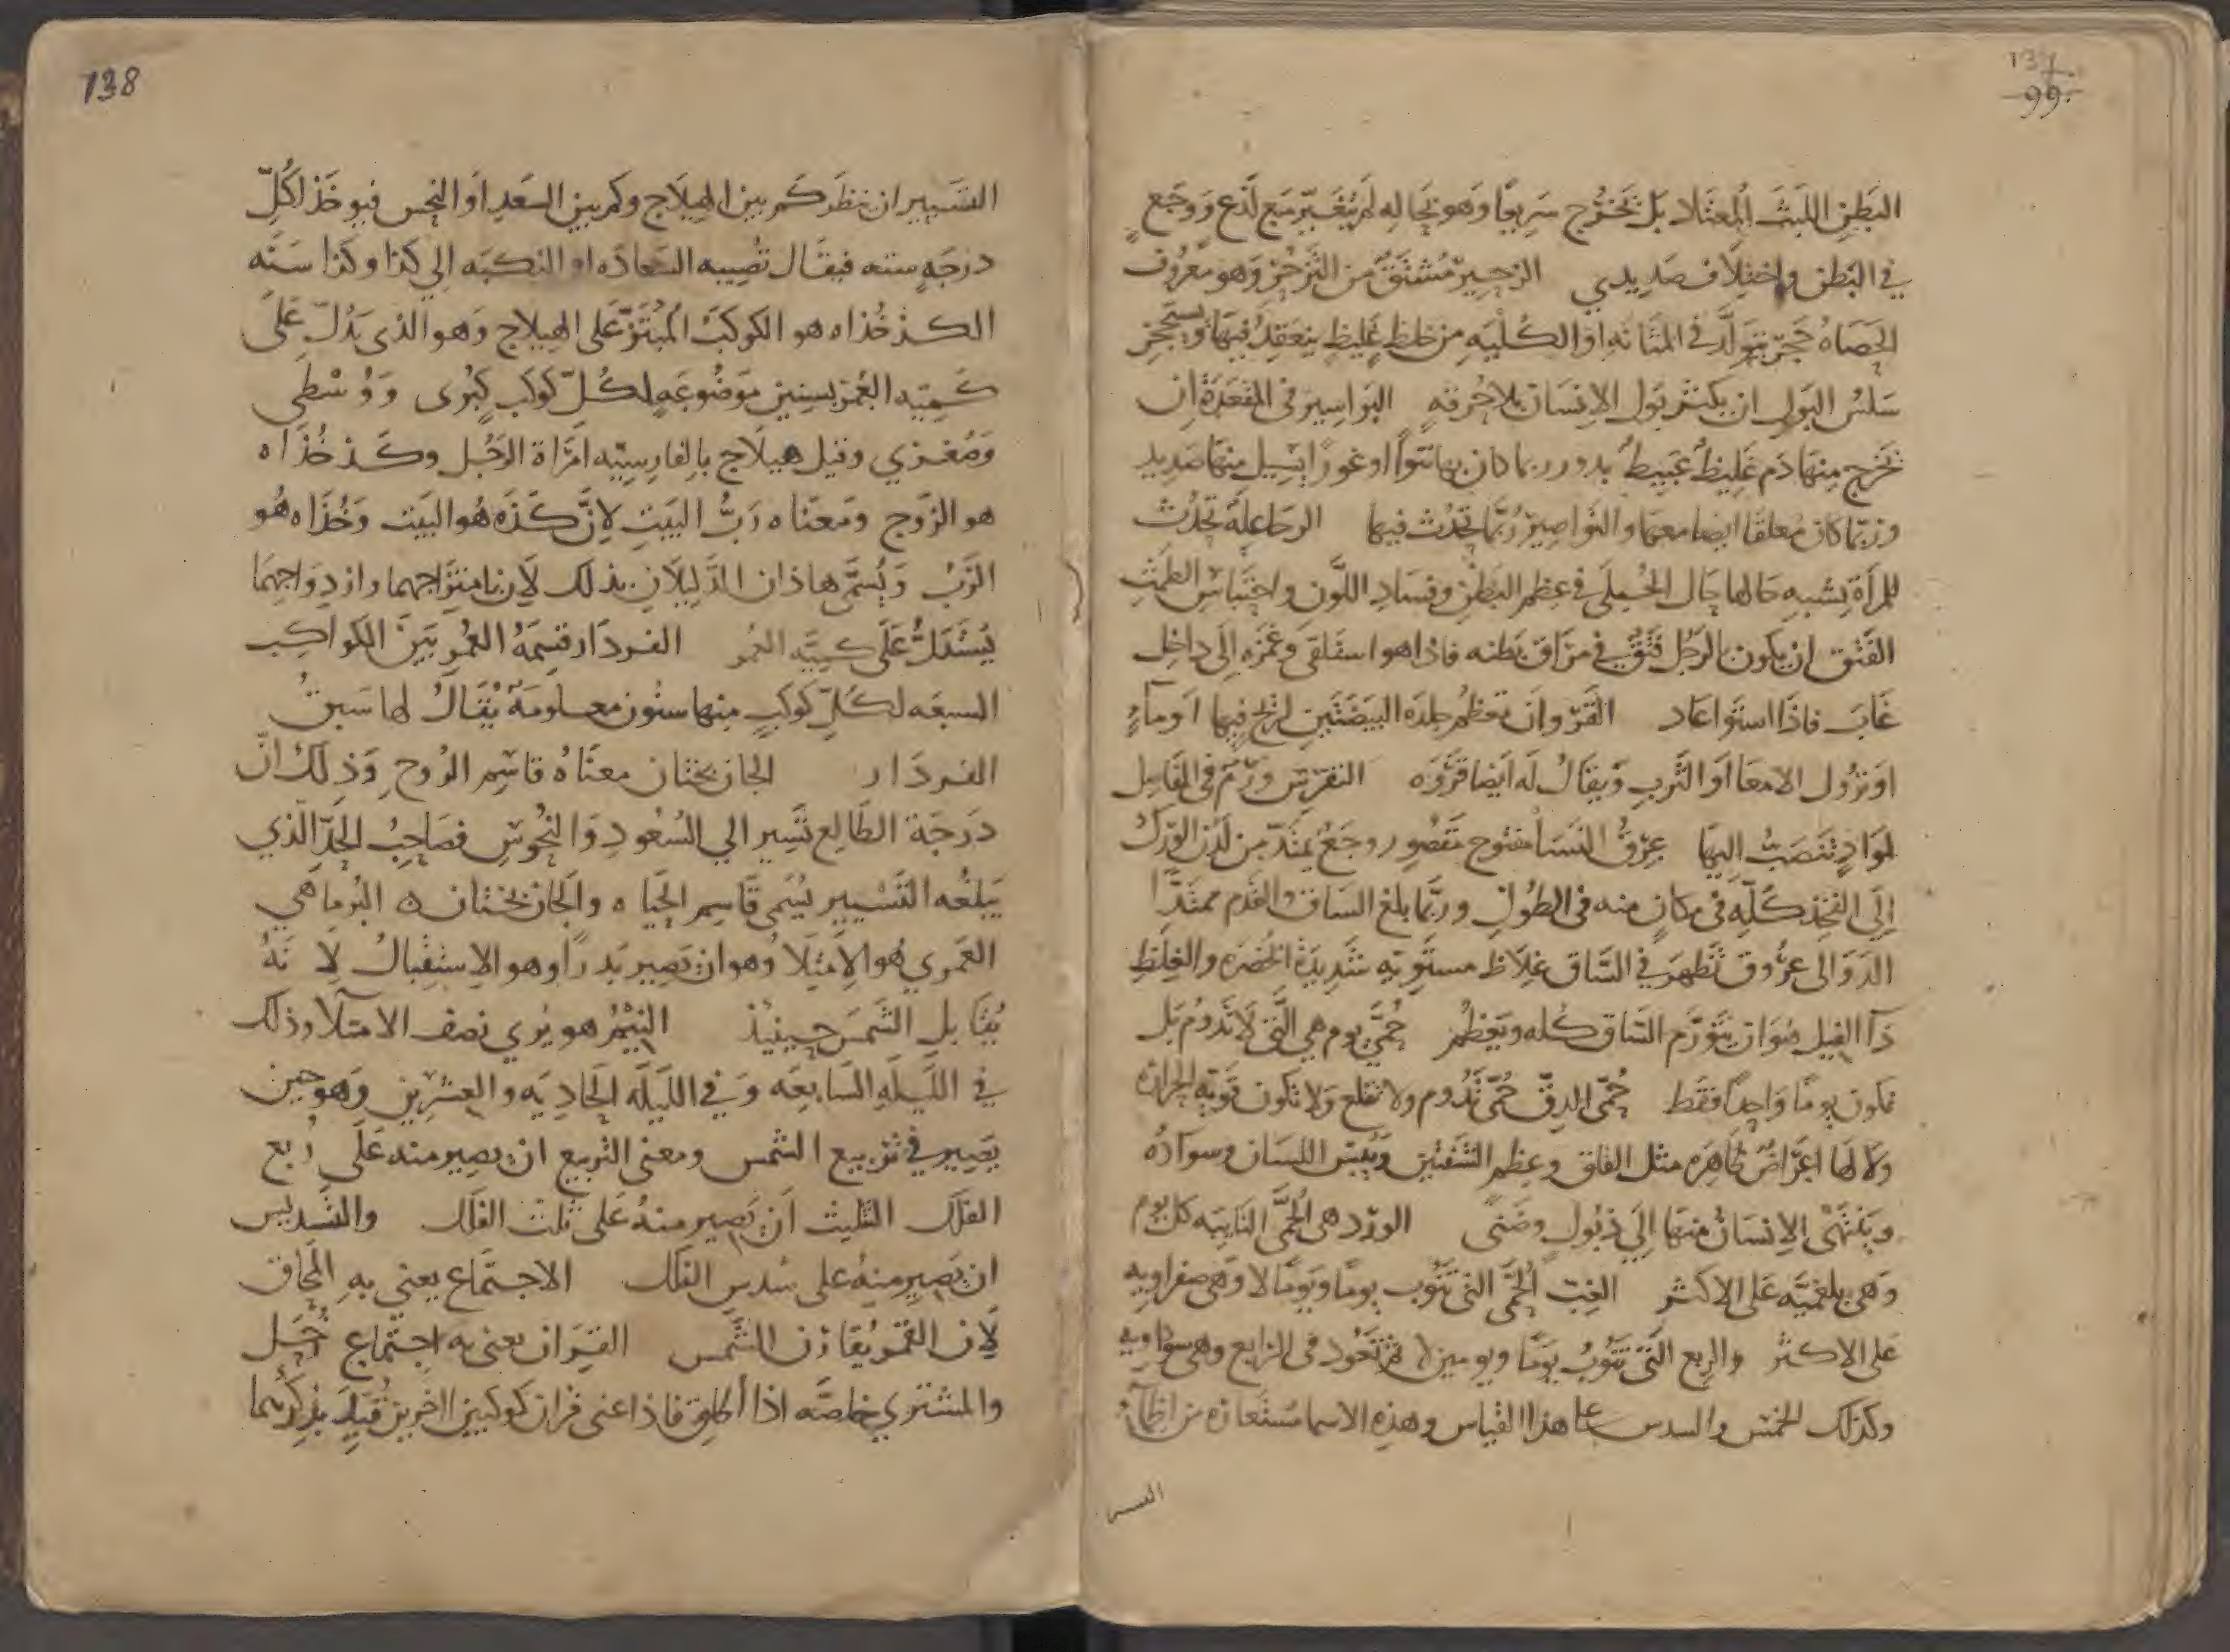 137
99
البَطنِ اللبثَ المعتَلا بَل تَخرُج سَرِيعًا وَهو بحاله لَم يتغَيّر مَع لَذع وَوَجَع
في البَطن واختِلاف صَدِيدي الزحِيرُ مُشتَقٌ من التَزَحُّرْ وَهو مَعرُوف
الحَصَاهُ حَجَرٌ يتَوَلَّد في المَثَانَه او الكُليَهِ من خلط غَليظ ينعَقِدُ فيهَا ويستحجِر
سَلسُ البَول ان يكثر بَول الانسَان بلا حُرقهٍ البَواسِير في المقعَدَة ان
تخرج منهَا دَم غَلِيظٌ عَبيطٌ بدور ربما كان بها نتوا او غورا يَسِيل منها صَدِيد
وَربّما كان مُعلقا ايضا معها والنَواصِيرُ رُبَّما تحدُث فيها الرحَا علِهٌ تحدُث
للمرأة يشبه حَالها حَال الحُبلَى في عظم البَطن وفسَادِ اللَّون واحتباس الطمث
الفَتْق ان يكون بالرَجُل فَتقٌ في مرَاقّ بَطنه فاذا هو استَلقى وغَمَزَه الى داخِل
غَابَ فاذَا استَوا عَاد القَرْو ان تعظُم جِلدَه البَيضَتَين لريح فيها او مآءٍ
او نزُول الامعَا اَو الثَربِ وَيقَالُ لَه ايضا قَرْوَه النقرِس ورَم في المَفَاصِل
لمَوادّ تنصَبُّ اليهَا عِرْقُ النَسَا مفتوح مَقصُور وجَع يمتدّ من لَدُن الوَرك
الى الفَخذ كلّه في مكانٍ منه في الطُول وربَّما بلغ السَاق والقدَم ممتَدًّا
الدَوَالى عرُوق تظهَر في السَّاق غِلاظ مستَويه شَدِيدَة الخُضرَه والغِلَظِ
دَآ الفيل هوَ ان يَتوَرَّم السَاق كله ويَعظُم حُمَّى يوم هي الَّتي لا تَدُوم بَل
تكون يومًا وَاحِدًا فقَط حُمّى الدقّ حُمّى تَدُوم ولا تقلع وَلا تكون قَويّه الحرارَه
ولا لها اعرَاضٌ ظاهِرَه مثل القلق وعظم الشَفَتين وَيُبس اللسَان وسوَادُه
وَيَنتَهى الانسَانُ منهَا الى ذبُولٍ وضَنًى الورْد هي الحُمَّى النَايبَه كل يوم
وَهي بلغميَّه عَلى الاكثر الغِبّ الحُمَّى التي تَنُوب يومًا ويَومًا لا وَهي صفراويه
على الاكثر والربع التى تنُوبُ يوَمًا ويومين لا ثم تَعُود في الرابع وهي سوداويه
وكذلك الخمسُ والسدس على هذا القياس وهذِه الاسما مستعارَه من اظمآء
138
التَسيير ان ينظَر كَم بين الهيلاج وكَم بين السَعدِ اَو النحس فيوخَذ لكُلِّ
درجَهٍ سنه فيقَال تصِيبه السَعادَه او النكبَه الي كذا وكذا سَنَه
الكذخُذاه هو الكوكبُ المُبتَزّ عَلى الهيلاج وَهو الذى يَدُلّ عَلَى
كَميّه العُمر بسِنينٍ مَوضُوعَه لكُلّ كَوكَب كُبرى وَوُسْطى
وَصُغرَي وقيل هيلَاج بالفارِسيّه امْرَاة الرَجُل وكذخُذاه
هو الزَوج ومَعنَاه رَبُّ البَيتِ لانَّ كَذَه هُو البَيت وَخُذَاه هُو
الرَبُّ وَيُسَمَّى هاذان الدَّلِيلَان بذلك لَان بامتزَاجهما وازدِوَاجهمَا
يُستَدَلُّ عَلَى كميَّه العُمر الفردَار قسِمَةُ العُمر بَين الكواكِب
السبعَه لكُلّ كَوكَبٍ منها سنُون معلومَةٌ يُقَالُ لها سَنِىُ
الفردَار الجان بختان معنَاهُ قاسِم الرُوحِ وَذلَك انَّ
درَجَة الطَالِع تسَير الي السُعُودِ وَالنحُوسِ فصَاحِبُ الحَدِّ الَّذي
يَبلغُه التَسْيير يُسَمى قَاسِم الحَيَاه والجَان بختان ه البُرما هي
القمري هُو الامتلَا وُهو ان يَصير بَدرًا وهو الاستقبالُ لانَهُ
يُقَابل الشَمسَ حينيذ النِيْمْ هو يُري نصف الامتلآ وذلك
في اللَيلَه السَابعَه وَفي اللَيلَه الحَادِيَه والعشرِين وَهو حين
يَصِير في تربيع الشمس ومعنى التربيع ان يصير منه عَلَى رُبع
الفَلَك التثليث اَن يَصير منهُ عَلى ثلث الفَلَك والتسديس
ان يَصير منهُ على سُدس الفلك الاجتمَاع يعني به المحَاق
لَان القمَر يُقَارن الشَّمس القِرَان يعنى به اجتِمَاع زُحَل
والمشترى خاصَّه اذا اُطلق فاذا عنى قران كوكبَين اخَرين قُيّد بذكرهما